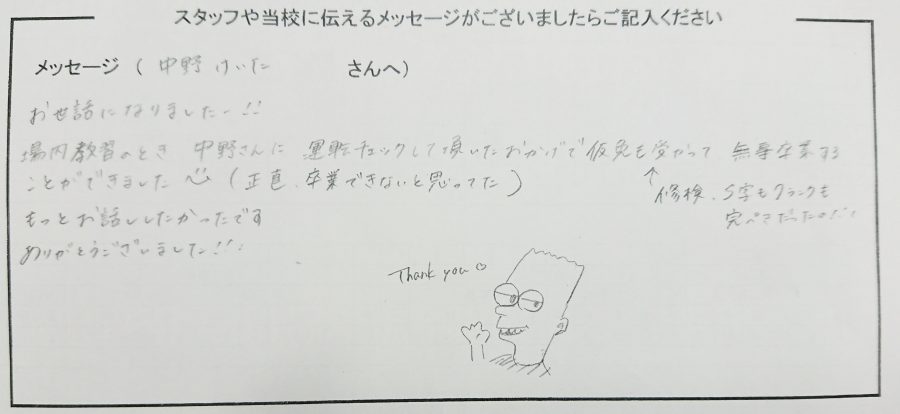 スタッフや当校に伝えるメッセージがございましたらご記入ください
メッセージ ( 中野 けいた さんへ)
お世話になりましたー!!
場内教習のとき 中野さんに 運転チェックして頂いたおかげで仮免も受かって 無事卒業する
ことができました (正直、卒業できないと思ってた)
↑
修検、S字もクランクも
完ぺきだったので!
もっとお話ししたかったです
ありがとうございました!!!
Thank you♡